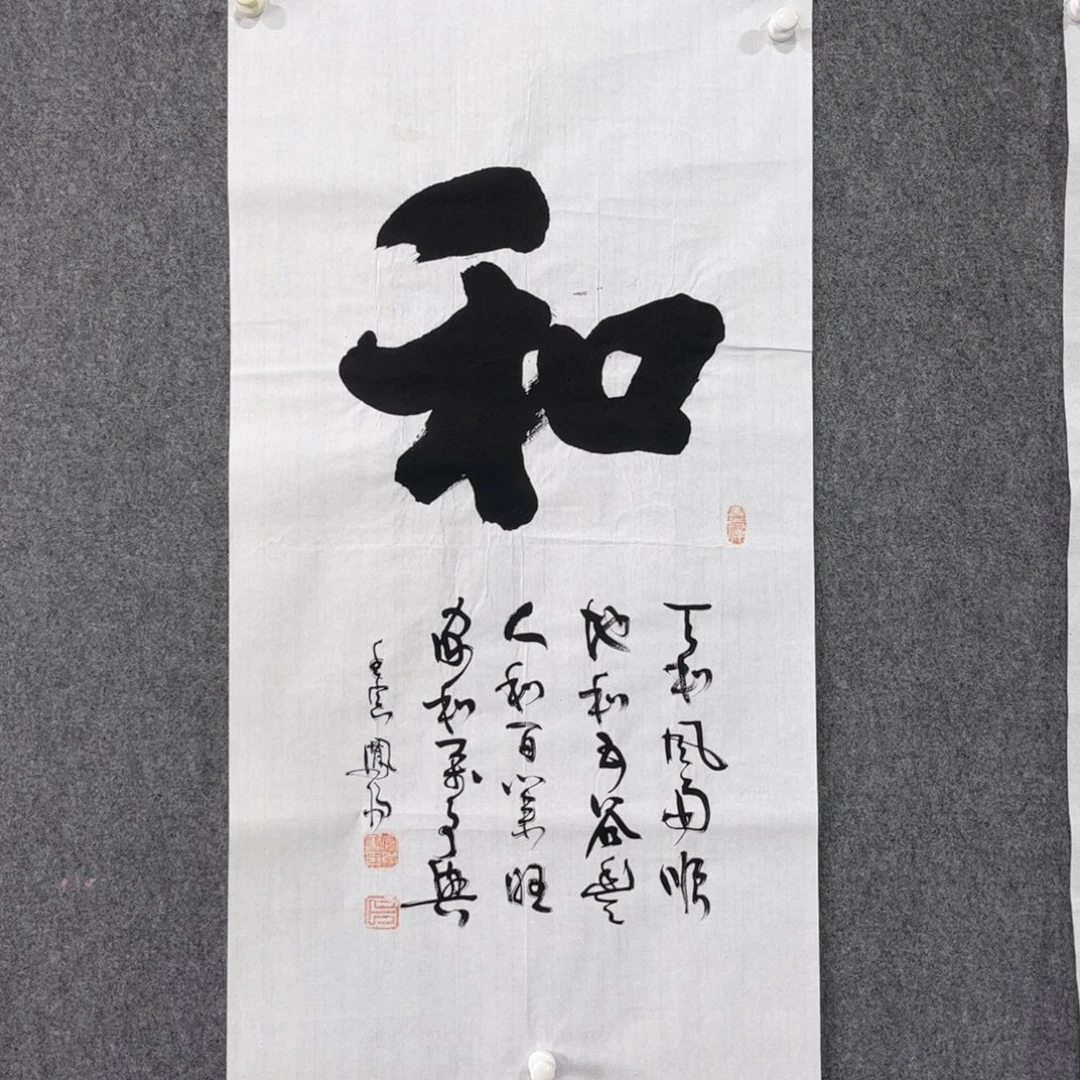 和
天和风雨顺
地和五谷丰
人和百业旺
家和万事兴
壬寅